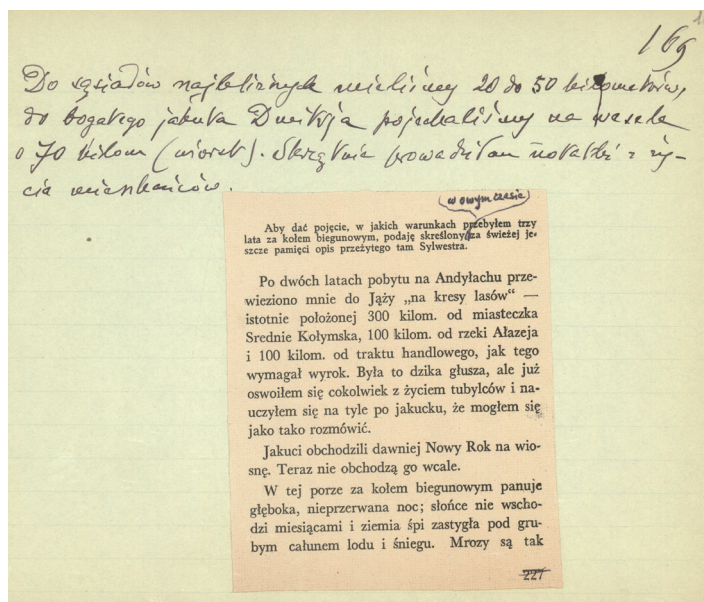 169
Do sąsiadów najbliższych mieliśmy 20 do 50 kilometrów,
do bogatego jakuta pojechaliśmy na wesele
o 70 kilom (wiorst). Skrzętnie prowadziłam notatki z ży-
cia mieszkańców.
w owym czasie
Aby dać pojęcie, w jakich warunkach przebyłem trzy
lata za kołem biegunowym, podaję skreślony za świeżej je-
szcze pamięci opis przeżytego tam Sylwestra.
Po dwóch latach pobytu na Andyłachu prze-
wieziono mnie do Jąży „na kresy lasów“ —
istotnie położonej 300 kilom. od miasteczka
Srednie Kołymska, 100 kilom. od rzeki Ałazeja
i 100 kilom. od traktu handlowego, jak tego
wymagał wyrok. Była to dzika głusza, ale już
oswoiłem się cokolwiek z życiem tubylców i na-
uczyłem się na tyle po jakucku, że mogłem się
jako tako rozmówić.
Jakuci obchodzili dawniej Nowy Rok na wio-
snę. Teraz nie obchodzą go wcale.
W tej porze za kołem biegunowym panuje
głęboka, nieprzerwana noc; słońce nie wscho-
dzi miesiącami i ziemia śpi zastygła pod gru-
bym całunem lodu i śniegu. Mrozy są tak
227